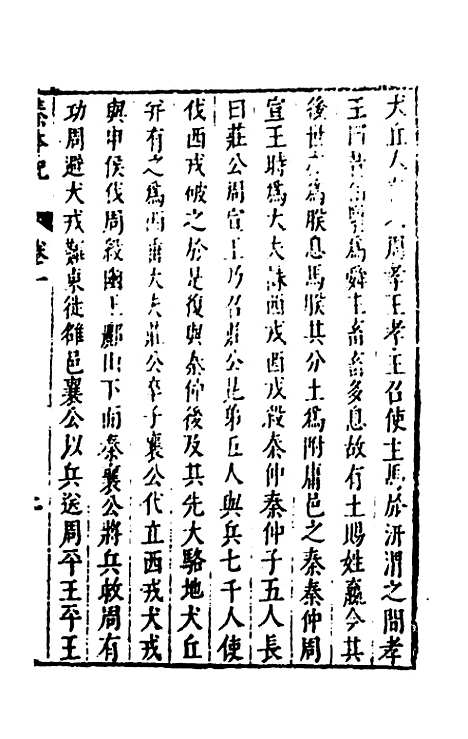 犬丘人言之周孝王孝王召使主馬於汧渭之間孝
王曰昔伯翳為舜主畜畜多息故有土賜姓嬴今其
後世亦為朕息馬朕其分土為附庸邑之秦秦仲周
宣王時為大夫誅西戎西戎殺秦仲秦仲子五人長
曰莊公周宣王乃召莊公昆弟五人與兵七千人使
伐西戎破之於是復與秦仲後及其先大駱地犬丘
并有之為西垂大夫莊公卒子襄公代立西戎犬戎
與申侯伐周殺幽王酈山下而秦襄公將兵救周有
功周避犬戎難東徙雒邑襄公以兵送周平王平王
秦本紀 卷一